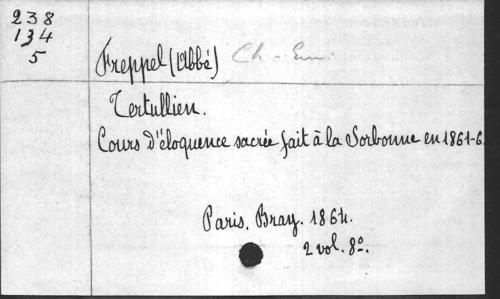 238
134
5
Freppel (l'Abbé) Ch-Em.
Tertullien.
Cours d'éloquence sacrée fait à la Sorbonne en 1861-6
Paris. Bray. 1864.
2 vol. 8º.